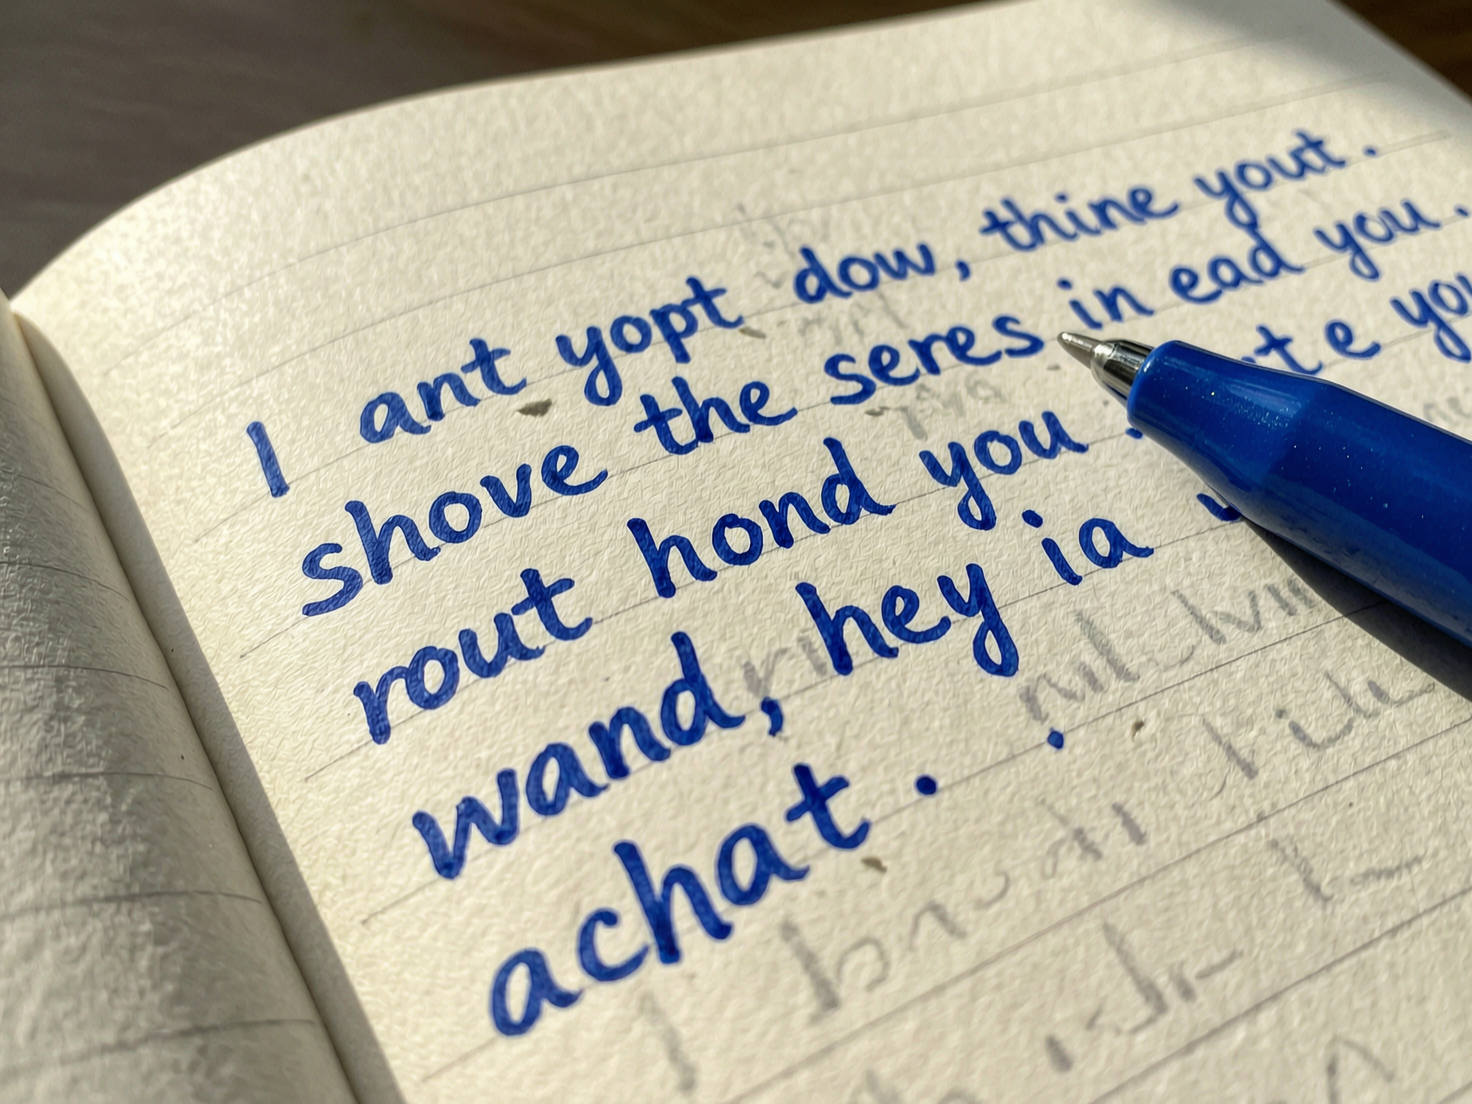 I ant yopt dow, thine yout.
shove the seres in ead you.
rout hond you
wand, hey ia
achat.